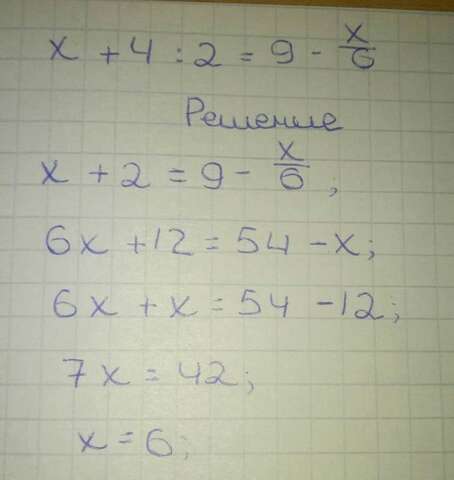 x + 4 : 2 = 9 - x/6
Решение
x + 2 = 9 - x/6;
6x + 12 = 54 - x;
6x + x = 54 - 12;
7x = 42;
x = 6;